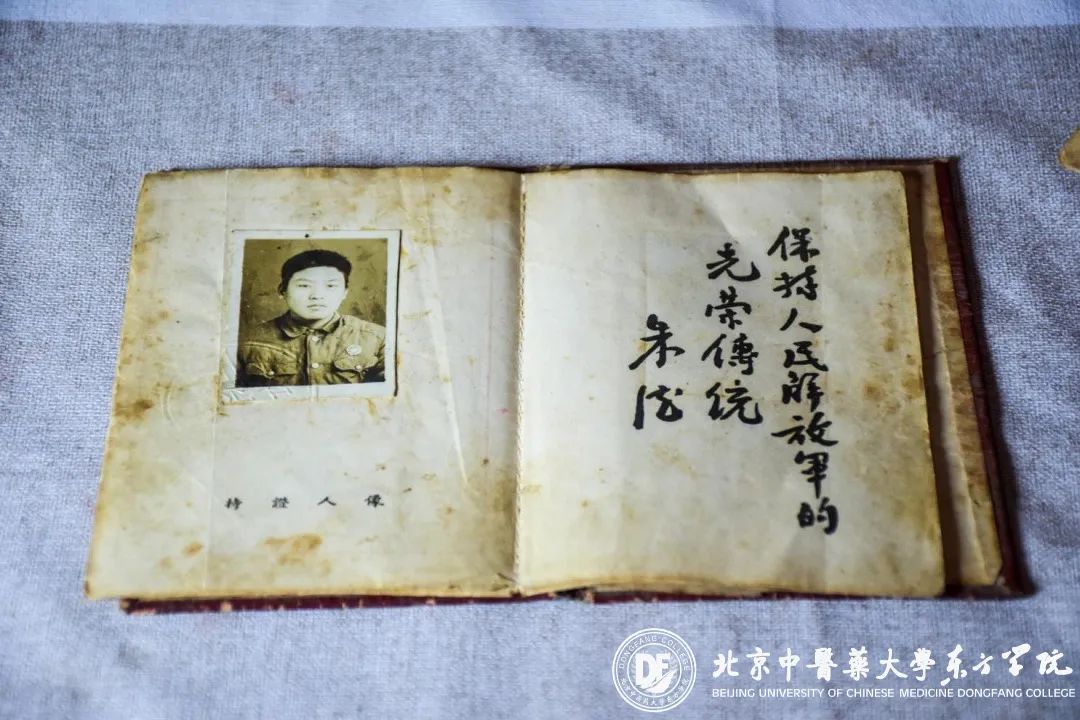 持證人像
保持人民解放軍的
光荣傳統
朱德
DONGFANG COLLEGE
DF
北京中医药大学东方学院
北京中醫藥大學东方学院
BEIJING UNIVERSITY OF CHINESE MEDICINE DONGFANG COLLEGE